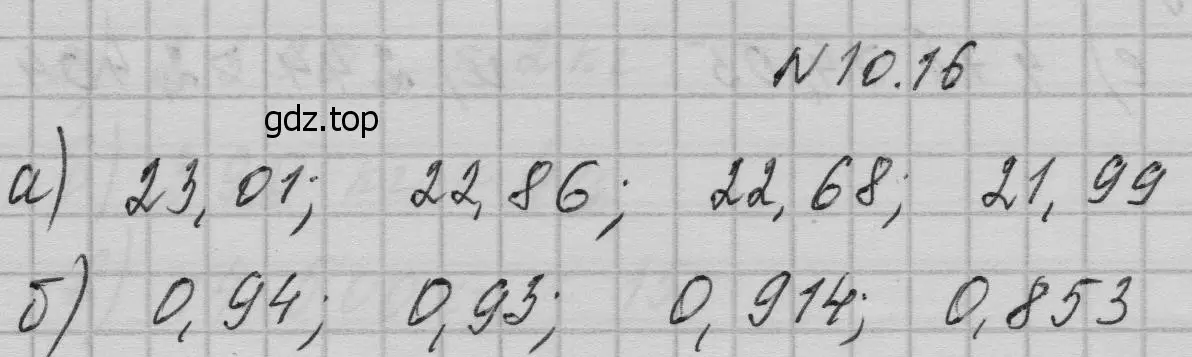 N 10.16
gdz.top
а) 23,01; 22,86; 22,68; 21,99
б) 0,94; 0,93; 0,914; 0,853